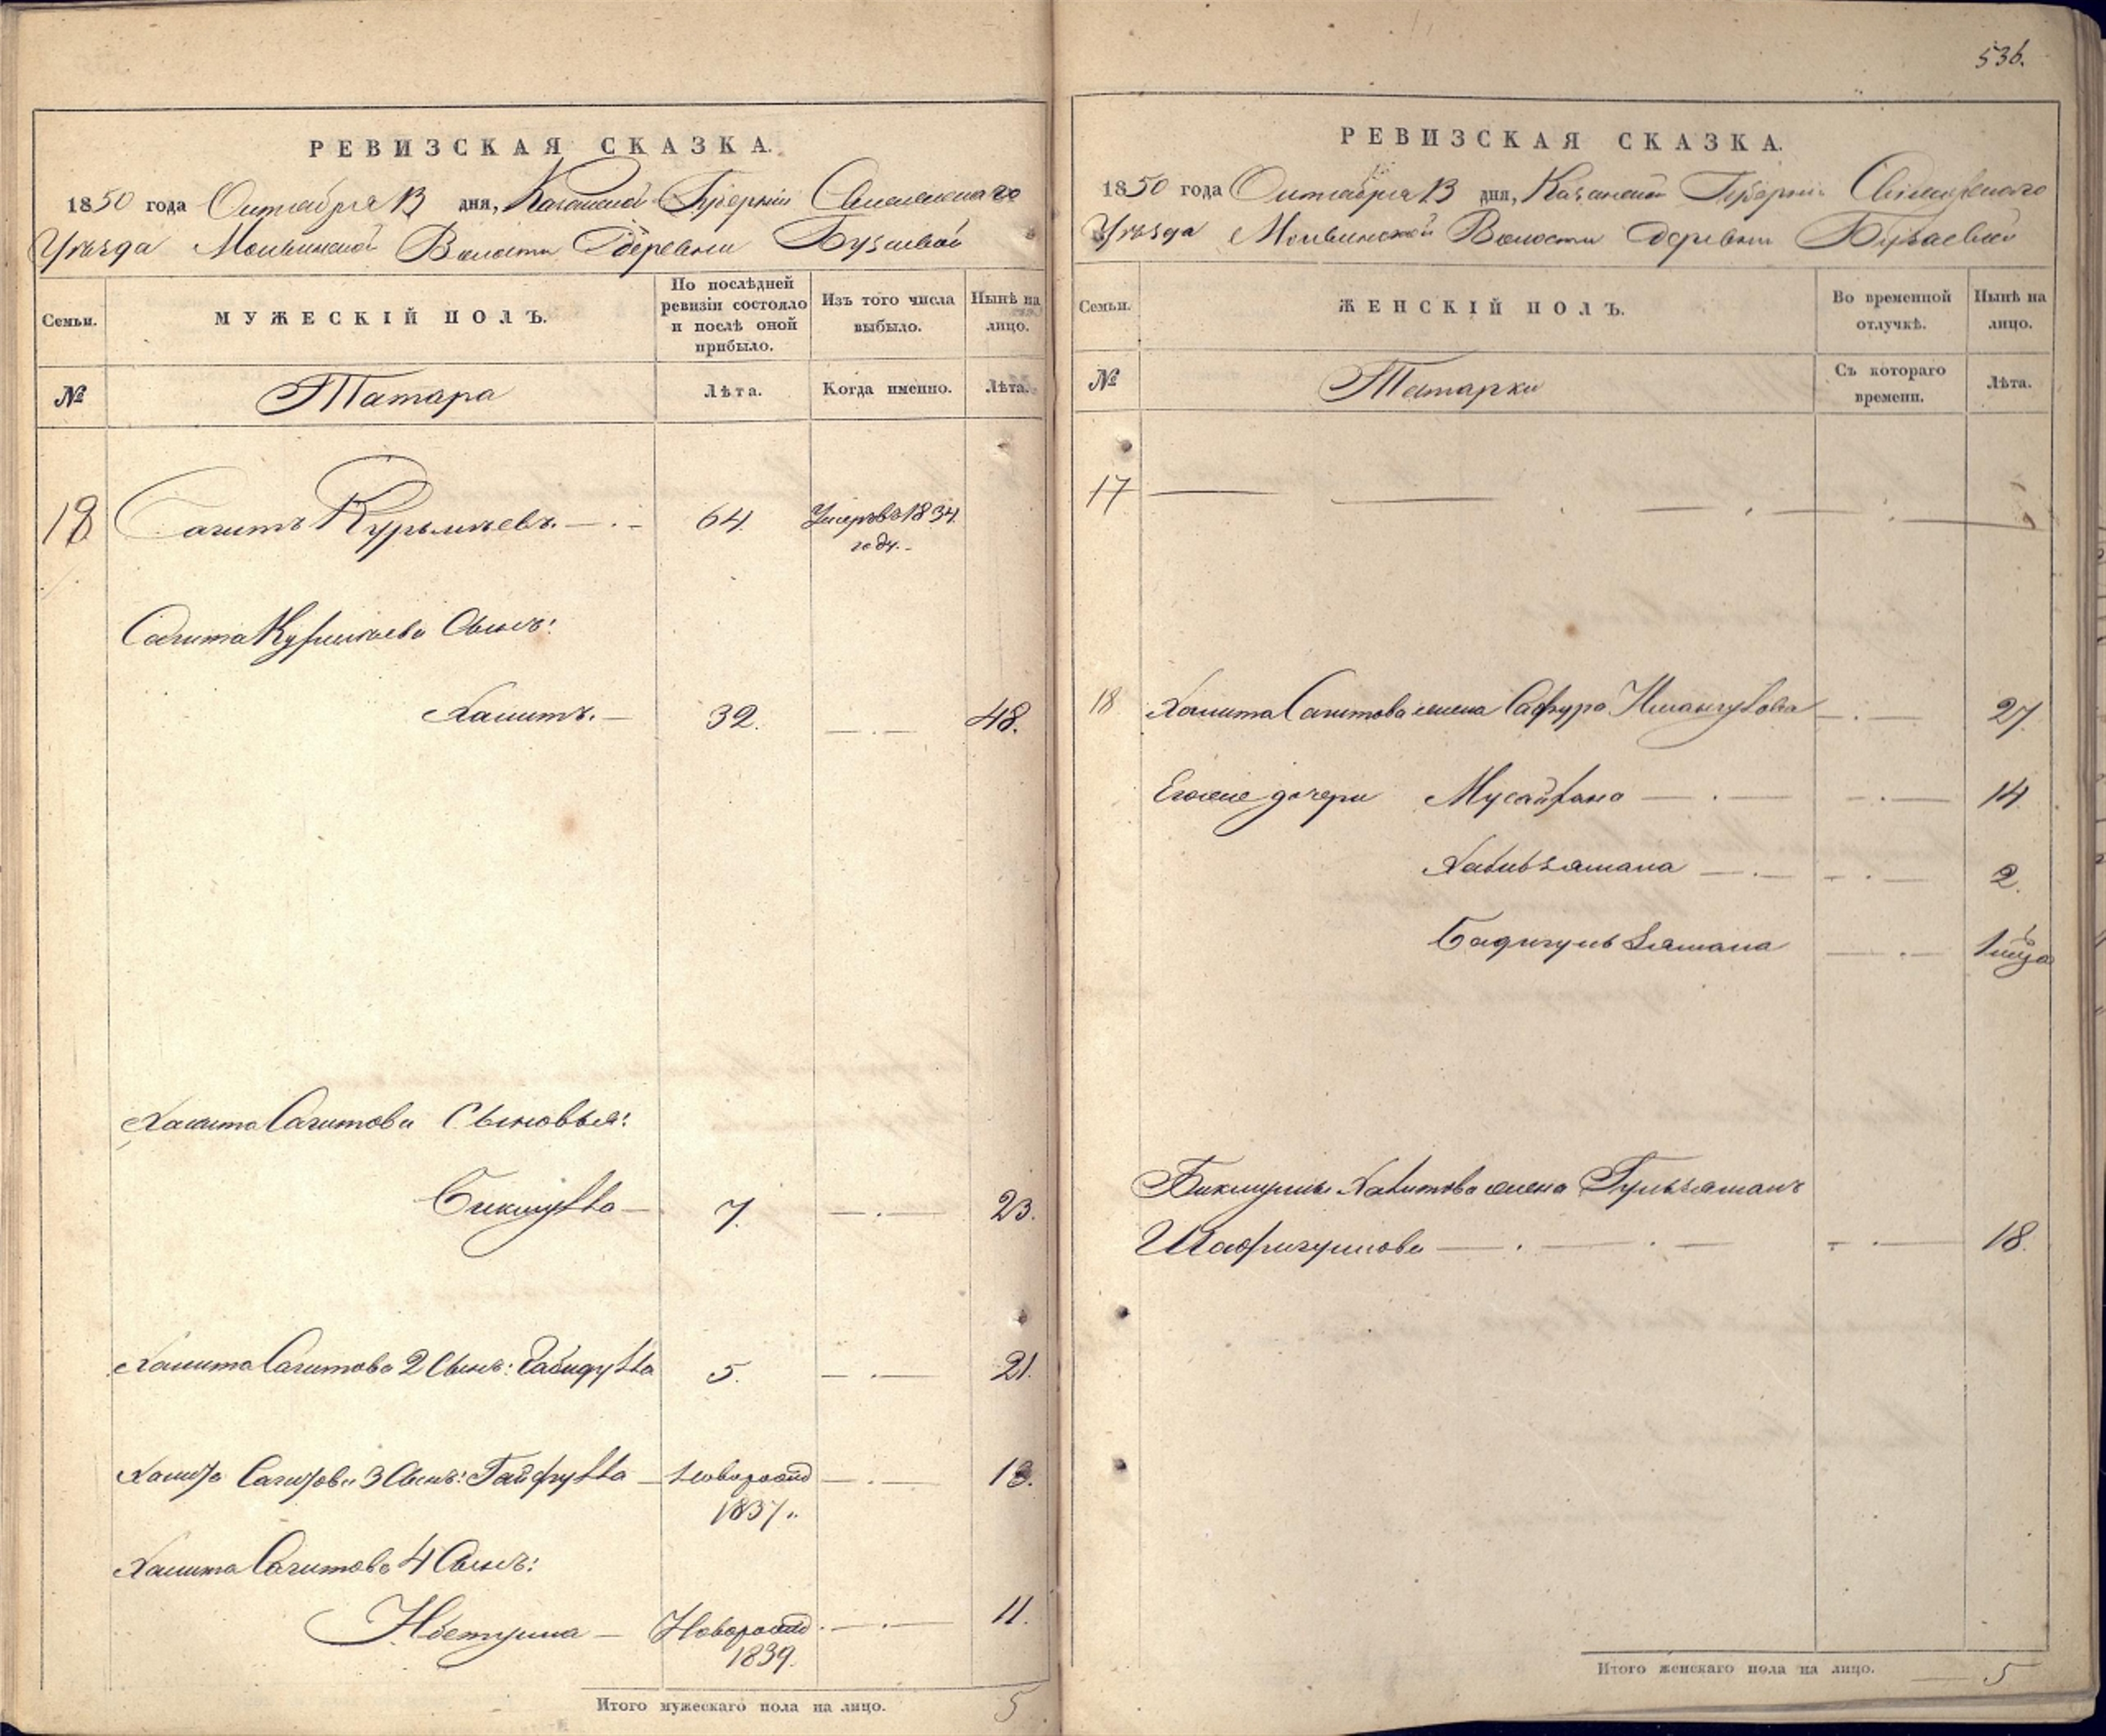 536.
РЕВИЗСКАЯ СКАЗКА.
1850 года Октября 13 дня, Казанской Губерніи Свіяжскаго
Уѣзда Молвинской Волости Деревни Бузаевой
Семьи. МУЖЕСКІЙ ПОЛЪ. По послѣдней ревизіи состояло и послѣ оной прибыло. Изъ того числа выбыло. Нынѣ на лицо.
№ Татара Лѣта. Когда именно. Лѣта.
18 Сагитъ Курымчевъ. 64. Умеръ въ 1834
году.
Сагита сынъ:
Хамитъ. 32. 48.
Хамита Сагитова Сыновья:
Бикмулла 7. 23.
Хамита Сагитова 2 Сынъ: Габидулла 5. 21.
Хамита Сагитова 3 Сынъ: Гайфулла Новорожд 13.
1837.
Хамита Сагитова 4 Сынъ:
Новорожд 11.
1839.
Итого мужескаго пола на лицо. 5
РЕВИЗСКАЯ СКАЗКА.
1850 года Октября 13 дня, Казанской Губерніи Свіяжскаго
Уѣзда Молвинской Волости Деревни Бузаевой
Семьи. ЖЕНСКІЙ ПОЛЪ. Во временной отлучкѣ. Нынѣ на лицо.
№ Татарки Съ котораго времени. Лѣта.
17
18 Хамита Сагитова жена Сафура Имангулова 27.
Его же дочери 14.
Хабибзямала 2.
Бадигульзямала 1 мѣсяца
Бикмуллы Хамитова жена Гульзяманъ
18.
Итого женскаго пола на лицо. 5